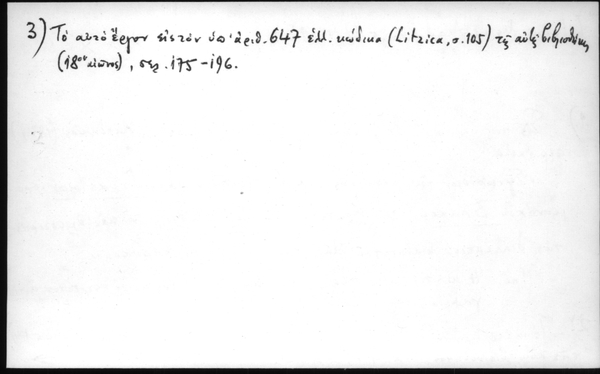 3) Τὸ αὐτὸ ἔργον εἰς τὸν ὑπ' ἀριθ. 647 ἑλλ. κώδικα (Litzica, σ. 105) τῆς αὐτῆς βιβλιοθήκης
(18ου αἰῶνος), σελ. 175-196.
2